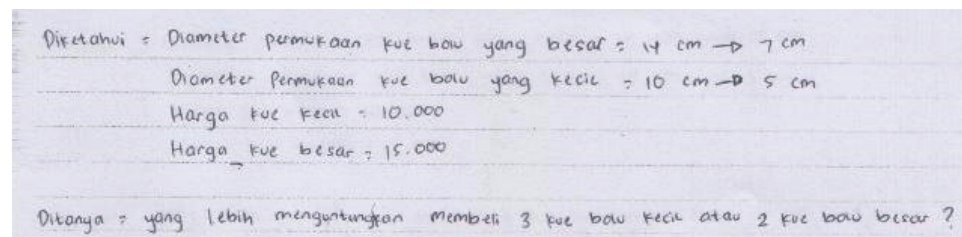 Diketahui = Diameter permukaan kue bolu yang besar = 14 cm → 7 cm
Diameter Permukaan kue bolu yang kecil = 10 cm → 5 cm
Harga kue kecil = 10.000
Harga kue besar = 15.000
Ditanya = yang lebih menguntungkan membeli 3 kue bolu kecil atau 2 kue bolu besar ?